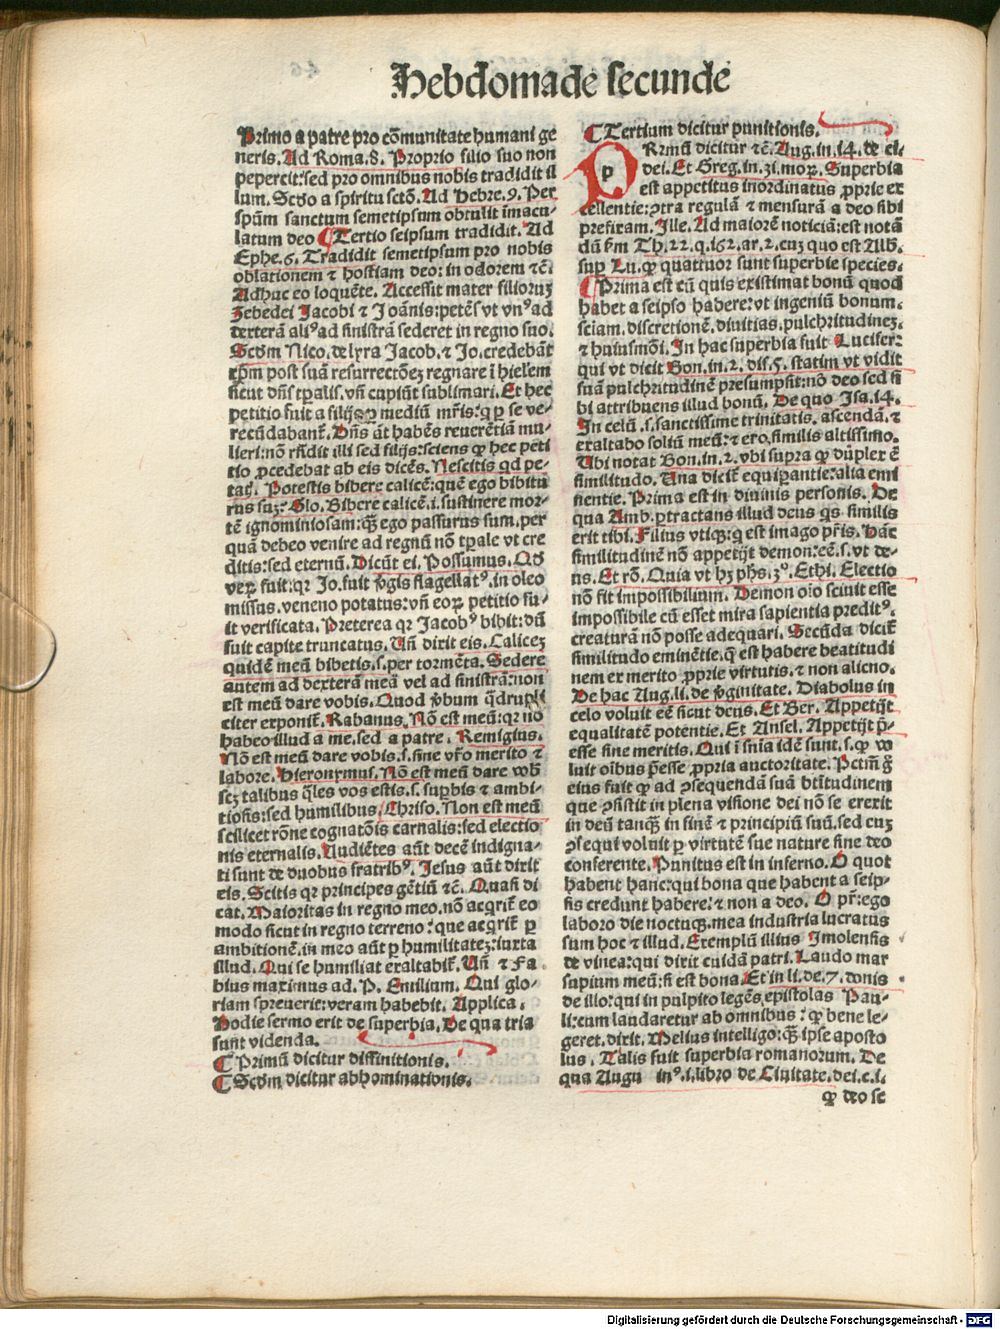 Hebdomade secunde
Primo a patre pro cōmunitate humani ge
neris. Ad Roma. 8. Proprio filio suo non
pepercit: sed pro omnibus nobis tradidit il
lum. Scd̄o a spiritu sctō. Ad Hebre. 9. Per
spūm sanctum semetipsum obtulit īmacu-
latum deo ¶ Tertio seipsum tradidit. Ad
Ephe. 6. Tradidit semetipsum pro nobis
oblationem ⁊ hostiam deo: in odorem ⁊c̄.
Adhuc eo loquēte. Accessit mater filioruꝫ
Zebedei Jacobi ⁊ Joānis: petēs vt vnꝰ ad
dexterā aliꝰ ad sinistrā sederet in regno suo.
Scd̄m Nico. de lyra Jacob. ⁊ Jo. credebāt
xp̄m post suā resurrectōeꝫ regnare ī hielem
sicut dn̄s tp̄alis. vn̄ cupiūt sublimari. Et hec
petitio fuit a filijs ꝑ mediū mr̄is: qꝛ ꝑ se ve-
recūdabant̄. Dn̄s āt habēs reuerētiā mu-
lieri: nō rn̄dit illi sed filijs: sciens ꝙ hec peti
tio ꝓcedebat ab eis dicēs. Nescitis qd pe-
tatꝭ. Potestis bibere calicē: quē ego bibitu
rus suꝫ: Glo. Bibere calicē .i. sustinere mor-
tē ignominiosam: quā ego passurus sum. per
quā debeo venire ad regnū nō tp̄ale vt cre
ditis: sed eternū. Dicūt ei. Possumus. Qd̄
veꝝ fuit: qꝛ Jo. fuit v̄gis flagellatꝰ. in oleo
missus. veneno potatus: vn̄ eoꝝ petitio fu-
it verificata. Preterea qꝛ Jacobꝰ bibit: dū
fuit capite truncatus. Un̄ dixit eis. Caliceꝫ
quidē meū bibetis. s. per tormēta. Sedere
autem ad dexterā meā vel ad sinistrā: non
est meū dare vobis. Quod v̄bum q̄drupli
citer exponit̄. Rabanus. Nō est meū: qꝛ nō
habeo illud a me. sed a patre. Remigius.
Nō est meū dare vobis. s. sine vr̄o merito ⁊
labore. Hieronymus. Nō est meū dare vob̄
scꝫ talibus q̄les vos estis. s. suꝑbis ⁊ ambi-
tiosis: sed humilibus. Chriso. Non est meū
scilicet rōne cognatōis carnalis: sed electio
nis eternalis. Audiētes aūt decē indigna-
ti sunt de duobus fratribꝰ. Jesus aūt dixit
eis. Scitis qꝛ principes gētiū ⁊c̄. Quasi di
cat. Maioritas in regno meo. nō acqrit̄ eo
modo sicut in regno terreno: que acqrit̄ ꝑ
ambitionē. in meo aūt ꝑ humilitateꝫ: iuxta
illud. Qui se humiliat exaltabit̄. Un̄ ⁊ Fa
bius maximus ad. P. Emilium. Qui glo-
riam spreuerit: veram habebit. Applica.
Hodie sermo erit de superbia. De qua tria
sunt videnda.
¶ Primū dicitur diffinitionis.
¶ Scd̄m dicitur abhominationis.
¶ Tertium dicitur punitionis.
PRimū dicitur ⁊c̄. Aug. in. 14. de ci.
dei. Et Greg. in. 31. moꝝ. Superbia
est appetitus inordinatus ꝓprie ex
cellentie: ꝯtra regulā ⁊ mensurā a deo sibi
prefixam. Ille. Ad maiorē noticiā: est notā
dū ẜm Th. 22. q. 162. ar. 2. cuꝫ quo est Alb.
suꝑ Lu. ꝙ quattuor sunt superbie species.
¶ Prima est cū quis existimat bonū quod
habet a seipso habere: vt ingeniū bonum.
sciam. discretionē. diuitias. pulchritudineꝫ.
⁊ huiusmōi. In hac superbia fuit Lucifer:
qui vt dicit Bon. in. 2. dis. 5. statim vt vidit
suā pulchritudinē presumpsit: nō deo sed si
bi attribuens illud bonū. De quo Isa. 14.
In celū .s. sanctissime trinitatis. ascendā. ⁊
exaltabo soliū meū: ⁊ ero similis altissimo.
Ubi notat Bon. in. 2. vbi supra ꝙ duplex ē
similitudo. Una dicit̄ equiparantie: alia emi
nentie. Prima est in diuinis personis. De
qua Amb. ꝑtractans illud deus q̄s similis
erit tibi. Filius vtiqꝫ: q est imago pr̄is. Hāc
similitudinē nō appetijt demon: eē .s. vt de-
us. Et rō. Quia vt hꝫ ph̄s. 3ꝰ. Ethi. Electio
nō fit impossibilium. Demon oīo sciuit esse
impossibile cū esset mira sapientia preditꝰ.
creaturā nō posse adequari. Secūda dicit̄
similitudo eminētie. q̄ est habere beatitudi
nem ex merito ꝓprie virtutis. ⁊ non alicno.
De hac Aug. li. de v̄ginitate. Diabolus in
celo voluit eē sicut deus. Et Ber. Appetijt
equalitatē potentie. Et Ansel. Appetijt p̄-
esse sine meritis. Qui ī sn̄ia idē sunt. s. ꝙ vo
luit oībus p̄esse ꝓpria auctoritate. Pctm̄ g̊
eius fuit ꝙ ad ꝯsequendā suā btītudinem
que ꝯsistit in plena visione dei nō se erexit
in deū tanqꝫ in finē ⁊ principiū suū. sed cuꝫ
ꝯsequi voluit ꝑ virtutē sue nature sine deo
conferente. Punitus est in inferno. O quot
habent hanc: qui bona que habent a seip-
sis credunt habere: ⁊ non a deo. O pr̄: ego
laboro die noctuqꝫ. mea industria lucratus
sum hoc ⁊ illud. Exemplū illius Imolensis
de vinea: qui dixit cuidā patri. Laudo mar
supium meū: si est bona. Et in li. de. 7. donis
de illo: qui in pulpito legēs epistolas Pau-
li: cum laudaretur ab omnibus: ꝙ bene le-
geret. dixit. Melius intelligo: quā ipse aposto
lus. Talis fuit superbia romanorum. De
qua Augu inꝰ. i. libro de Ciuitate. dei. c. i.
ꝙ deo se
Digitalisierung gefördert durch die Deutsche Forschungsgemeinschaft - DFG